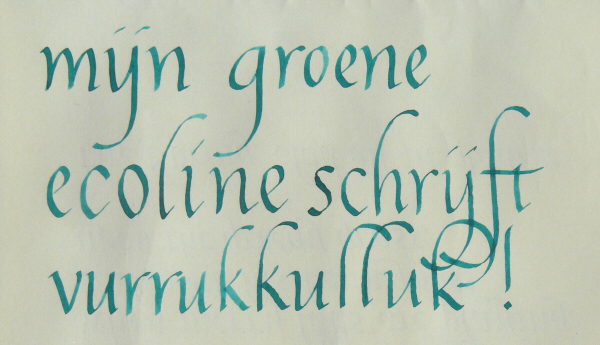 mijn groene
ecoline schrijft
vurrukkulluk!